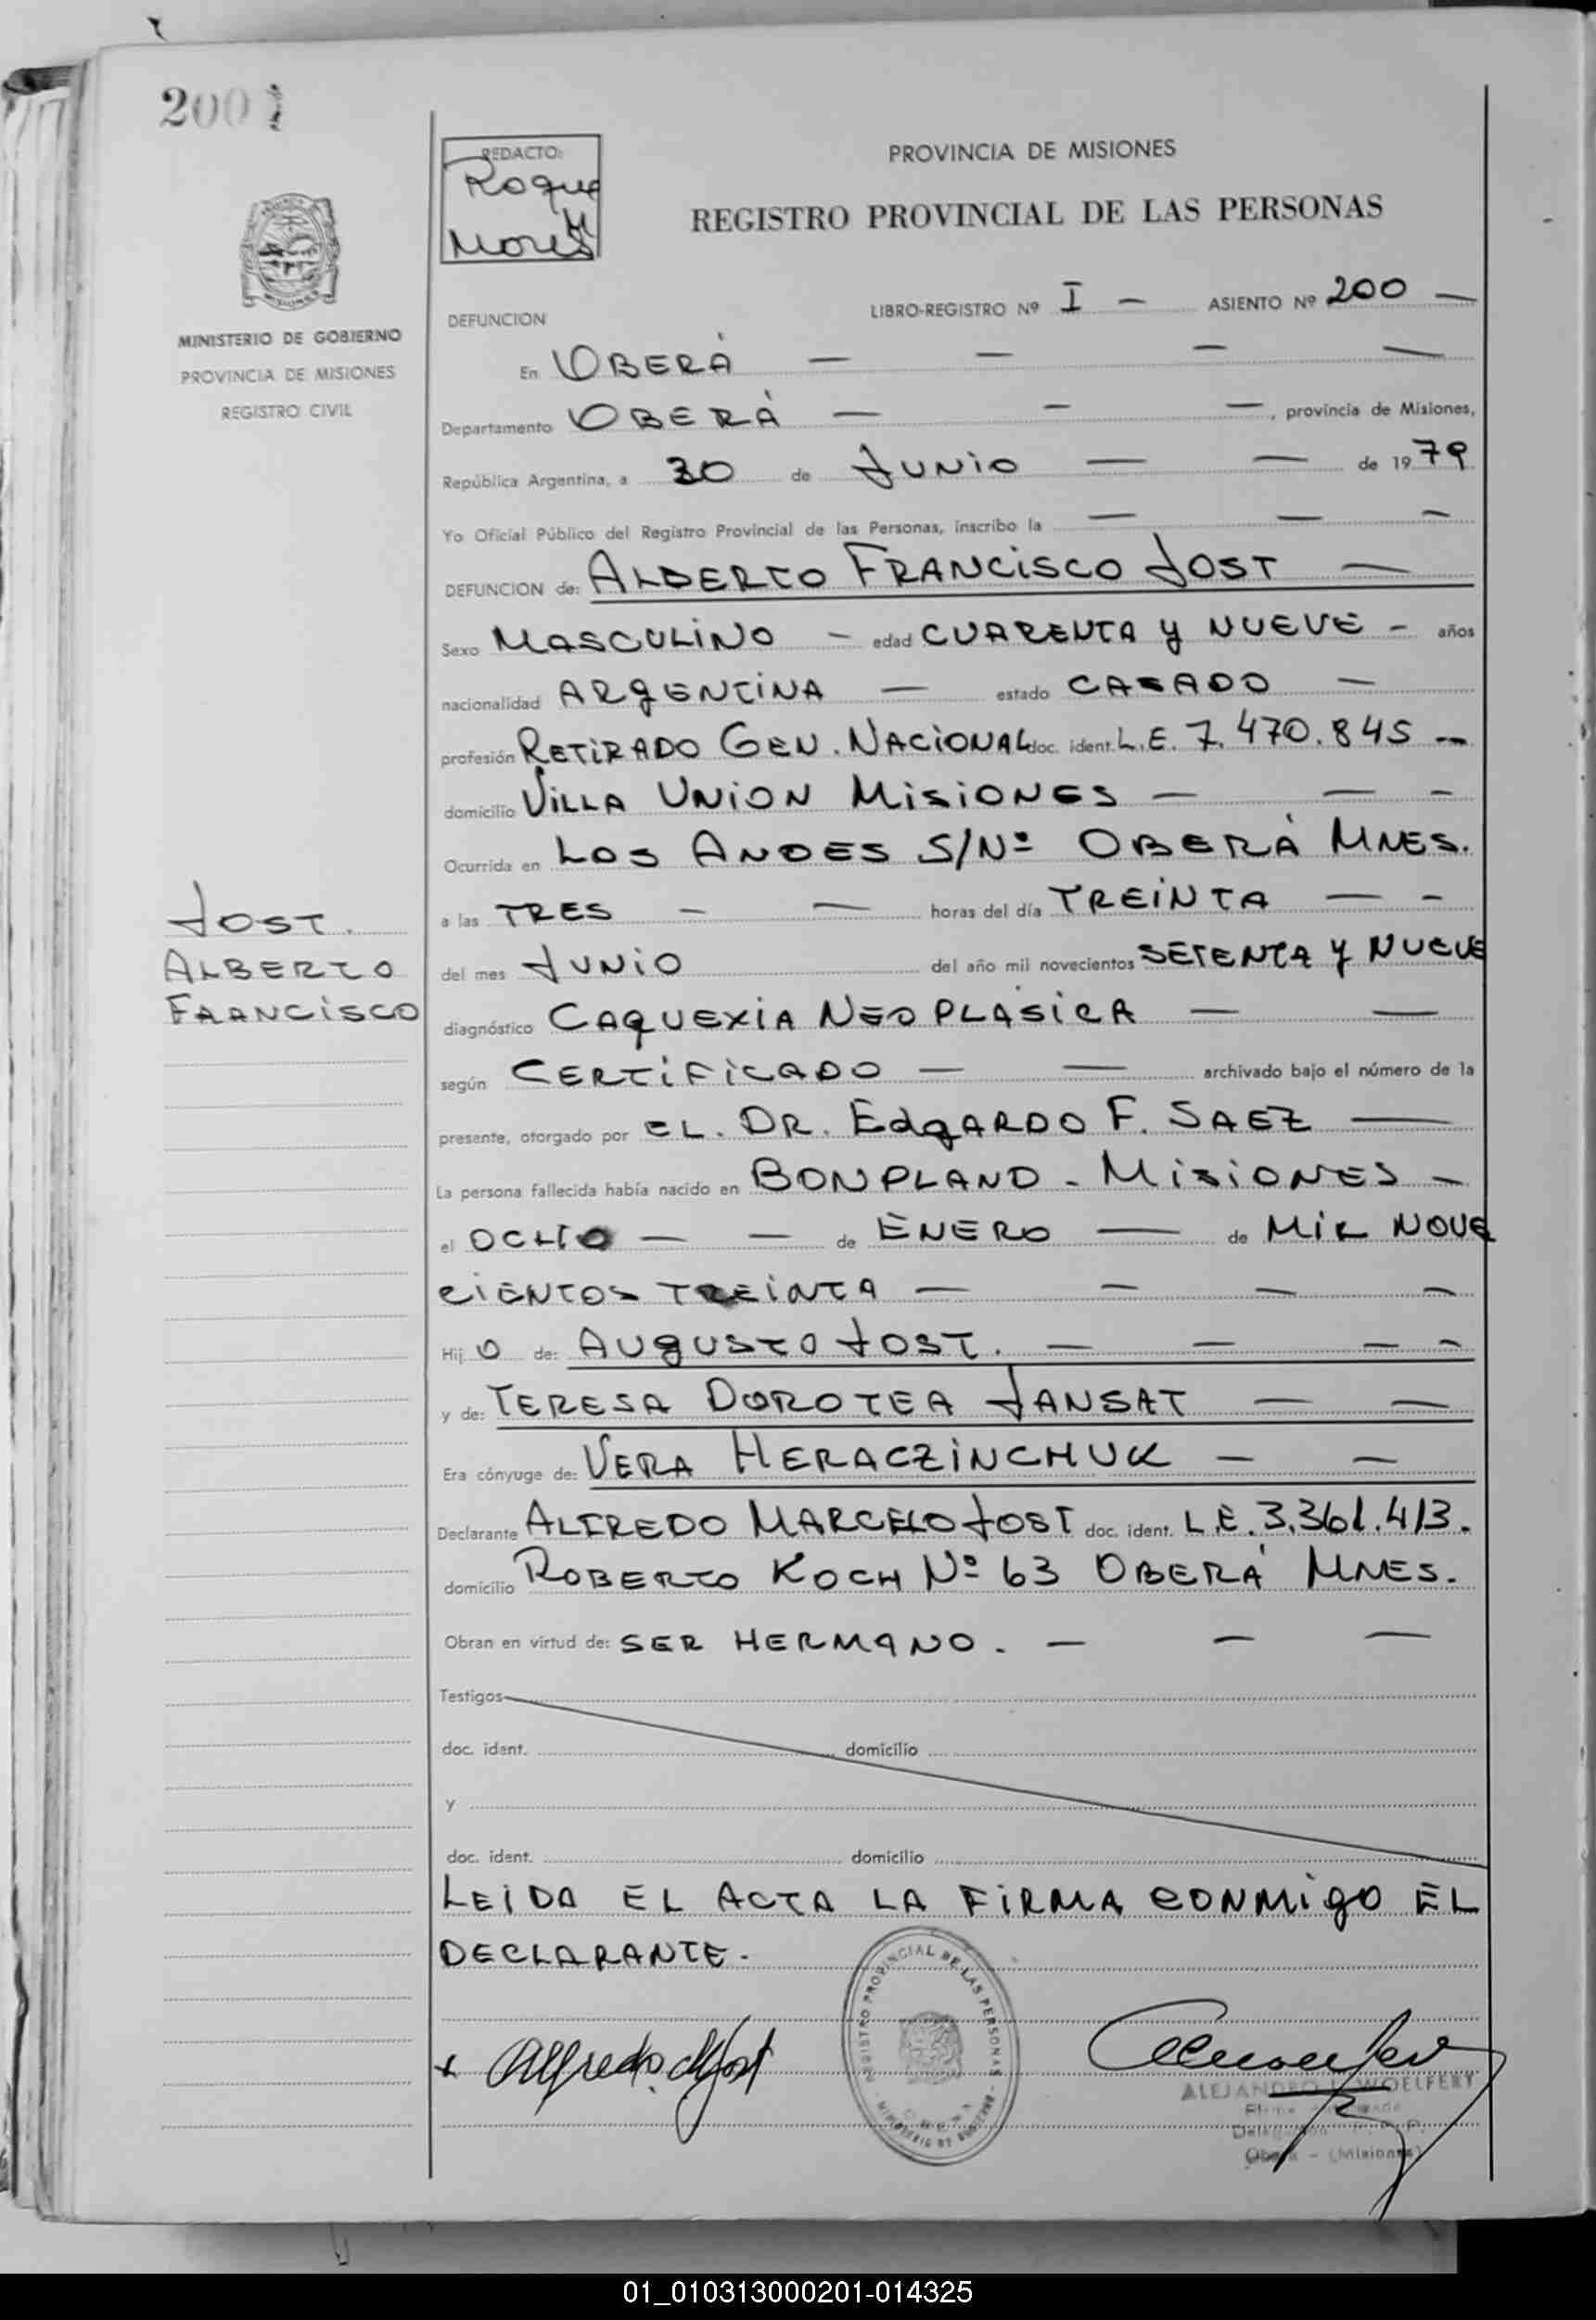 200
REDACTO:
Roque
PROVINCIA DE MISIONES
REGISTRO PROVINCIAL DE LAS PERSONAS
MINISTERIO DE GOBIERNO
PROVINCIA DE MISIONES
REGISTRO CIVIL
DEFUNCION LIBRO-REGISTRO Nº I — ASIENTO Nº 200 —
En OBERÁ — — — —
Departamento OBERÁ — — —, provincia de Misiones,
República Argentina, a 30 de JUNIO — — de 1979
Yo Oficial Público del Registro Provincial de las Personas, inscribo la — — —
DEFUNCION de: ALBERTO FRANCISCO JOST —
Sexo MASCULINO — edad CUARENTA y NUEVE - años
nacionalidad ARGENTINA — estado CASADO —
profesión RETIRADO GEN. NACIONAL doc. ident. L.E. 7.470.845 --
domicilio VILLA UNION MISIONES — — -
Ocurrida en LOS ANDES S/Nº OBERÁ MNES.
JOST.
ALBERTO
FRANCISCO
a las TRES - — horas del día TREINTA — -
del mes JUNIO del año mil novecientos SETENTA y NUEVE
diagnóstico CAQUEXIA NEOPLASICA — —
según CERTIFICADO — — archivado bajo el número de la
presente, otorgado por EL. DR. EdgARDO F. SAEZ —
La persona fallecida había nacido en BONPLAND - MISIONES -
el OCHO — — de ENERO — de MIL NOVE
CIENTOS TREINTA — — — —
Hij O de: AUGUSTO JOST. — — — -
y de: TERESA DOROTEA JANSAT — —
Era cónyuge de: VERA HERACZINCHUK — —
Declarante ALFREDO MARCELO JOST doc. ident. L.E. 3.361.413.
domicilio ROBERTO KOCH Nº 63 OBERÁ MNES.
Obran en virtud de: SER HERMANO. — — —
Testigos
doc. ident. domicilio
y
doc. ident. domicilio
LEIDA EL ACTA LA FIRMA CONMIGO EL
DECLARANTE.
REGISTRO PROVINCIAL DE LAS PERSONAS
MINISTERIO DE GOBIERNO
OBERA
x Alfredo M Jost
ALEJANDRO WOELFERT
Obera - (Misiones)
01_010313000201-014325